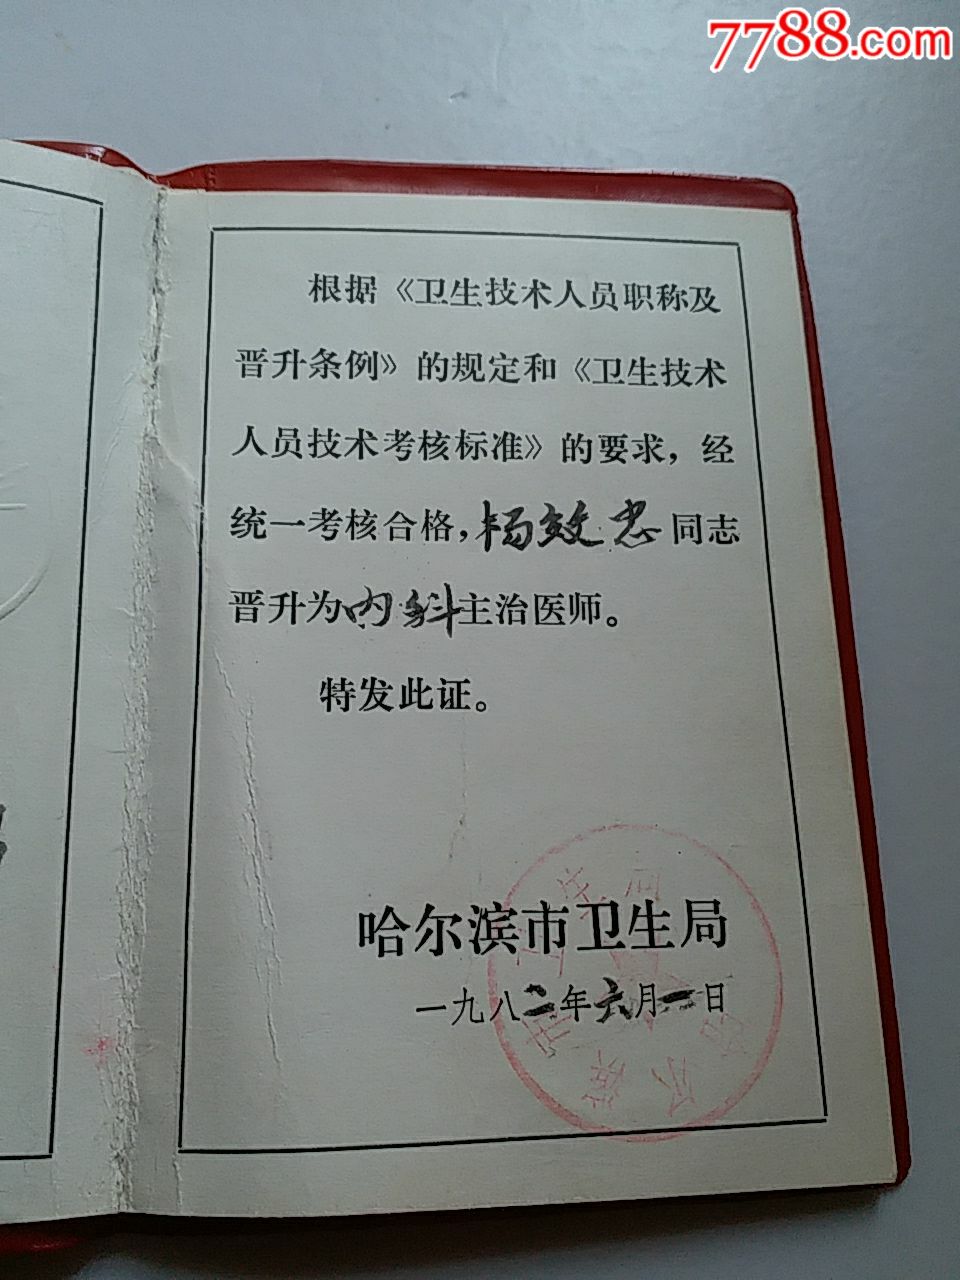 7788.com
根据《卫生技术人员职称及
晋升条例》的规定和《卫生技术
人员技术考核标准》的要求，经
统一考核合格，杨效忠同志
晋升为内科主治医师。
特发此证。
哈尔滨市卫生局
一九八二年六月一日
哈尔滨市卫生局